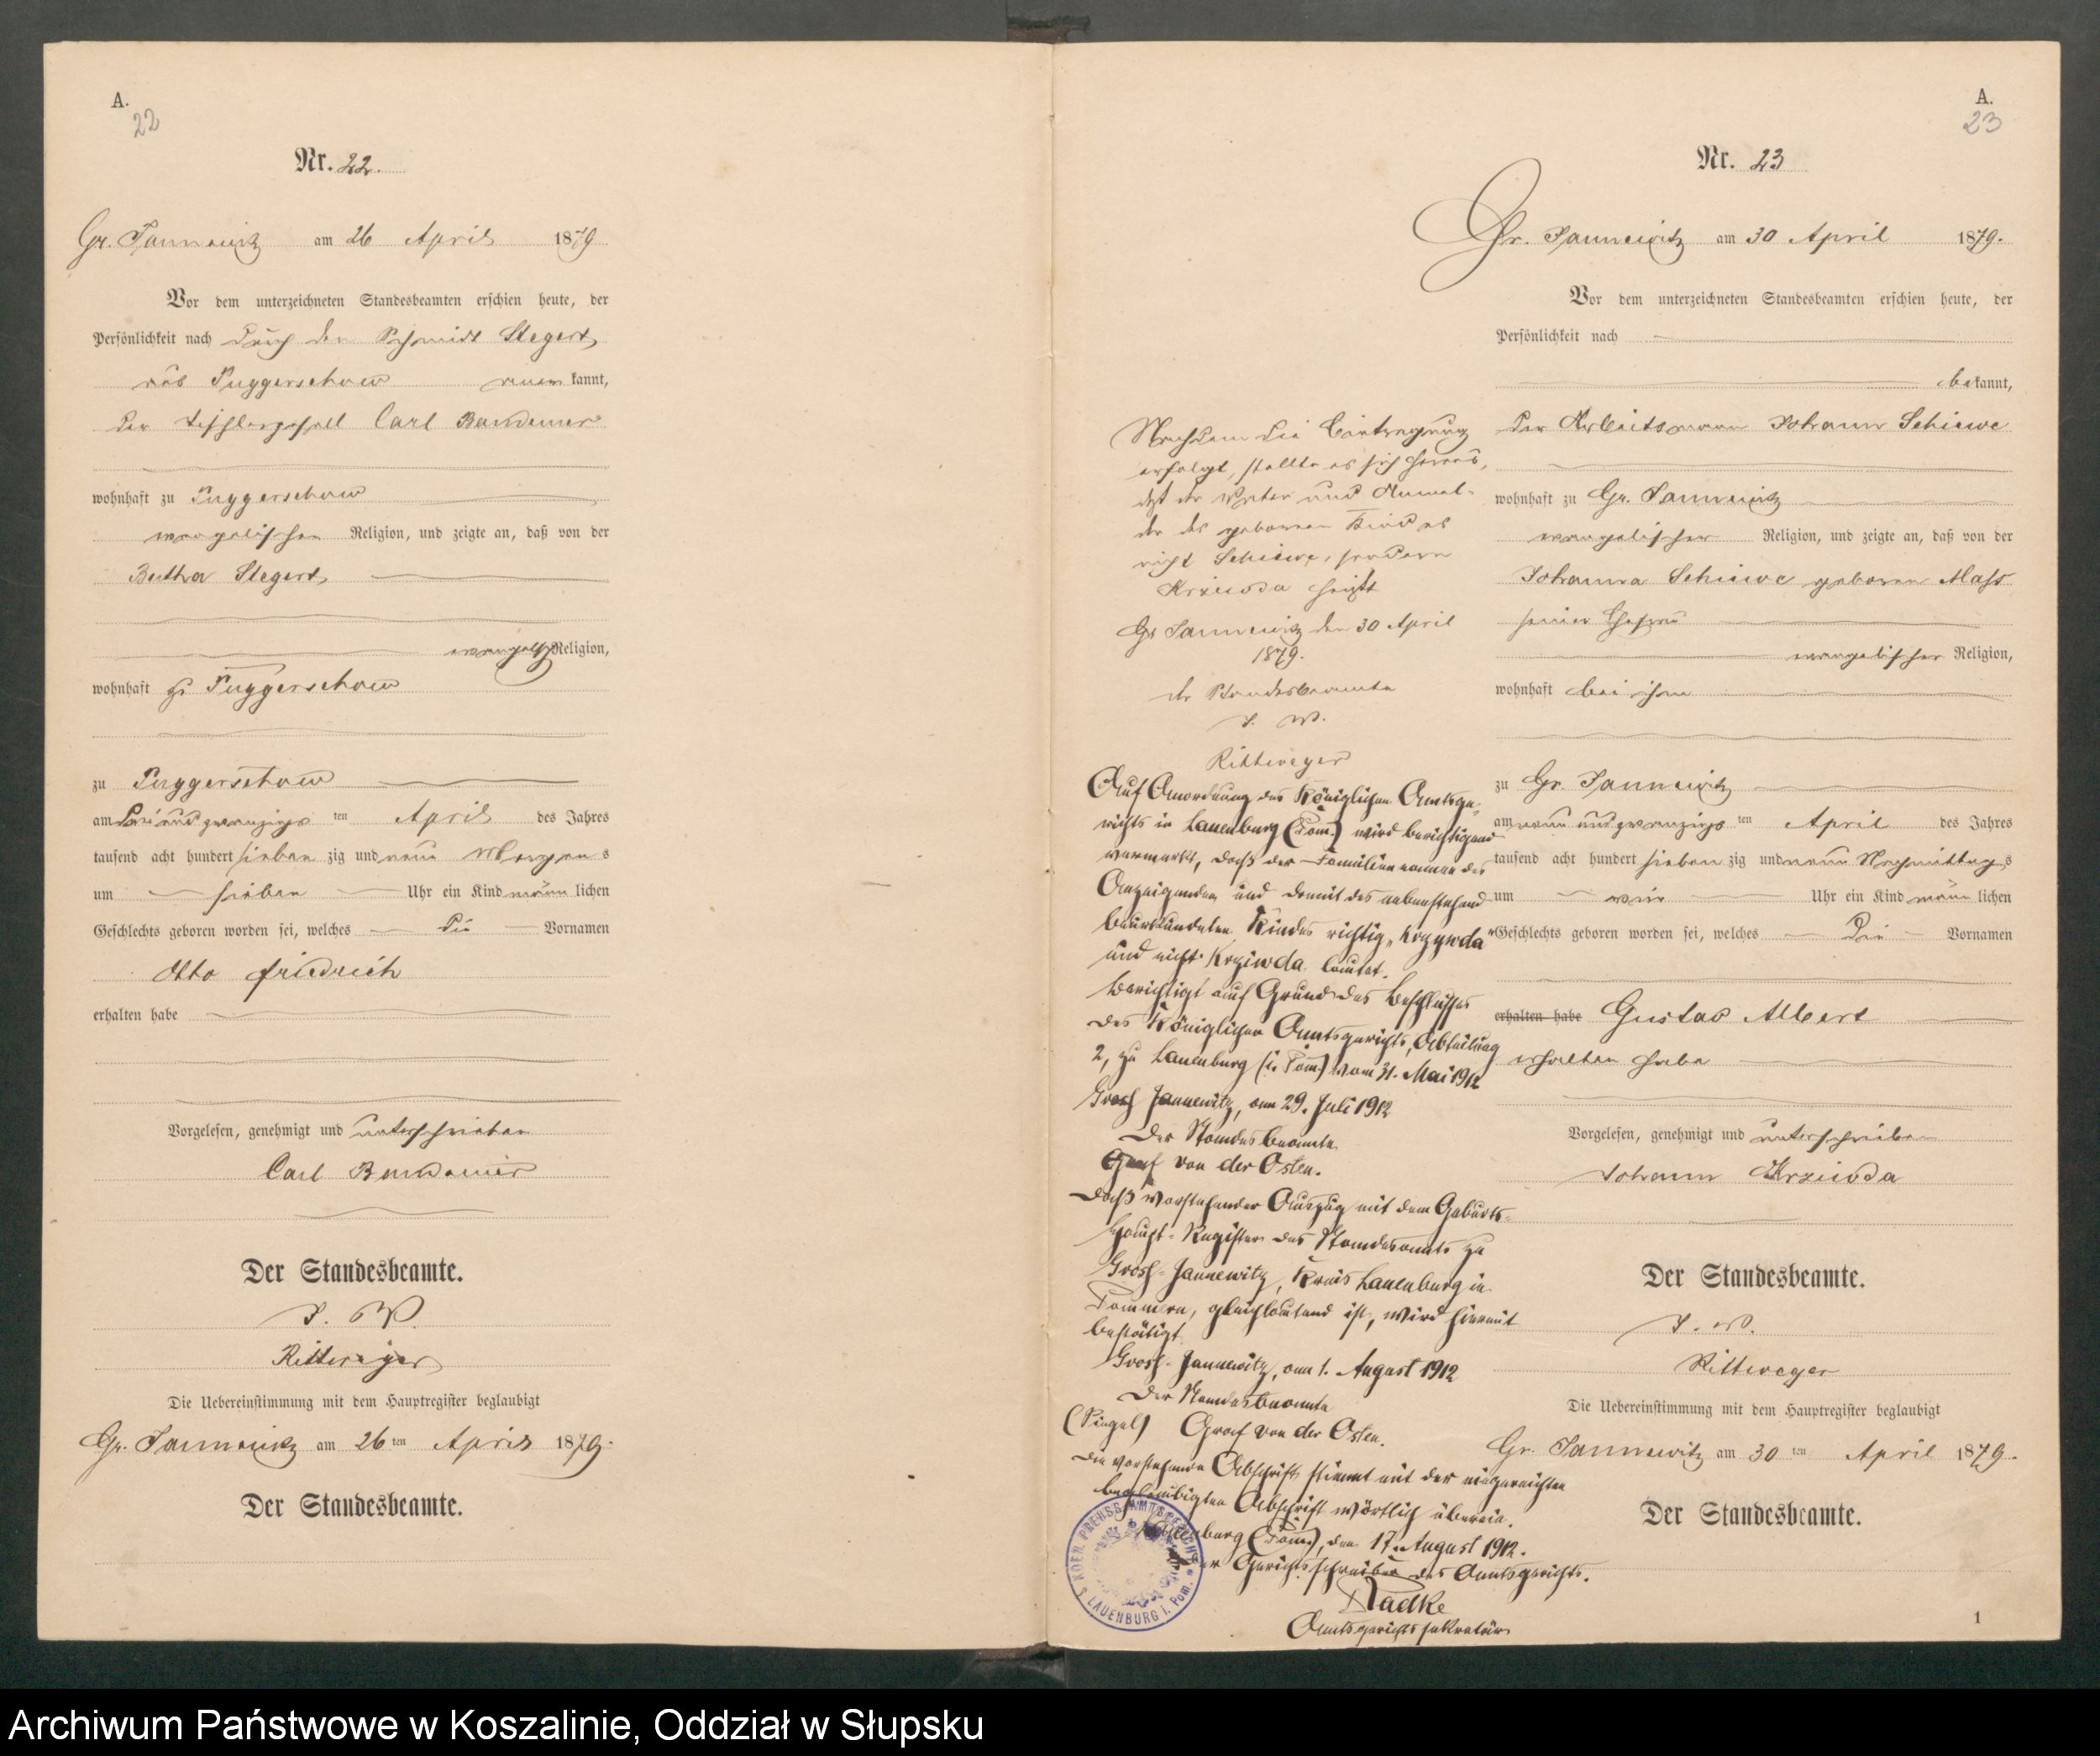 A.
22
Nr. 22.
Gr. Jannewitz am 26 April 1879
Vor dem unterzeichneten Standesbeamten erschien heute, der
Persönlichkeit nach durch den Schmidt Stegert
aus Puggerschow kannt,
der Tischlergesell Carl Bandemer
wohnhaft zu Puggerschow
evangelischer Religion, und zeigte an, daß von der
Bertha Stegert,
evangelischer Religion,
wohnhaft zu Puggerschow
zu Puggerschow
am drei und zwanzigs ten April des Jahres
tausend acht hundert sieben zig und neun Morgens
um sieben Uhr ein Kind männ lichen
Geschlechts geboren worden sei, welches die Vornamen
Otto Friedrich
erhalten habe
Vorgelesen, genehmigt und unterschrieben
Carl Bandemer
Der Standesbeamte.
I. V.
Rittweger
Die Uebereinstimmung mit dem Hauptregister beglaubigt
Gr. Jannewitz am 26 ten April 1879.
Der Standesbeamte.
A.
23
Nr. 23
Gr. Jannewitz am 30 April 1879.
Vor dem unterzeichneten Standesbeamten erschien heute, der
Persönlichkeit nach
bekannt,
der Arbeitsmann Johann Schiewe
wohnhaft zu Gr. Jannewitz
evangelischer Religion, und zeigte an, daß von der
Johanna Schiewe geboren Mass
seiner Ehefrau
evangelischer Religion,
wohnhaft bei ihm
zu Gr. Jannewitz
am neun und zwanzigs ten April des Jahres
tausend acht hundert sieben zig und neun Nachmittags
um vier Uhr ein Kind männ lichen
Geschlechts geboren worden sei, welches die Vornamen
erhalten habe Gustav Albert
erhalten habe
Vorgelesen, genehmigt und unterschrieben
Johann Krziwda
Der Standesbeamte.
I. V.
Rittweger
Die Uebereinstimmung mit dem Hauptregister beglaubigt
Gr. Jannewitz am 30 ten April 1879.
Der Standesbeamte.
1
Nachdem die Eintragung
erfolgt, stellte es sich heraus,
daß der Vater und Anmel-
der des geborenen Kindes
nicht Schiewe, sondern
Krziwda heißt
Gr Jannewitz den 30 April
1879.
der Standesbeamte
I. V.
Rittweger
Auf Anordnung des Königlichen Amtsge-
richts in Lauenburg (Pom.) wird berichtigend
vermerkt, daß der Familienname des
Anzeigenden und damit des nebenstehend
beurkundeten Kindes richtig „Krzywda"
und nicht Krziwda lautet.
Berichtigt auf Grund des Beschlusses
des Königlichen Amtsgerichts, Abteilung
2, zu Lauenburg (i. Pom.) vom 31. Mai 1912
Gross Jannewitz, am 29. Juli 1912
Der Standesbeamte.
Graf von der Osten.
Daß vorstehender Auszug mit dem Geburts-
Haupt-Register des Standesamts zu
Gross-Jannewitz, Kreis Lauenburg in
Pommern, gleichlautend ist, wird hiermit
bestätigt.
Gross-Jannewitz, am 1. August 1912
Der Standesbeamte
(Siegel) Graf von der Osten.
Die vorstehende Abschrift stimmt mit der eingereichten
beglaubigten Abschrift wörtlich überein.
Lauenburg (Pom.), den 17. August 1912.
Der Gerichtsschreiber des Amtsgerichts.
Radke
Amtsgerichtssekretär
KOEN. PREUSS. AMTSGERICHT
LAUENBURG i. Pom.
Archiwum Państwowe w Koszalinie, Oddział w Słupsku